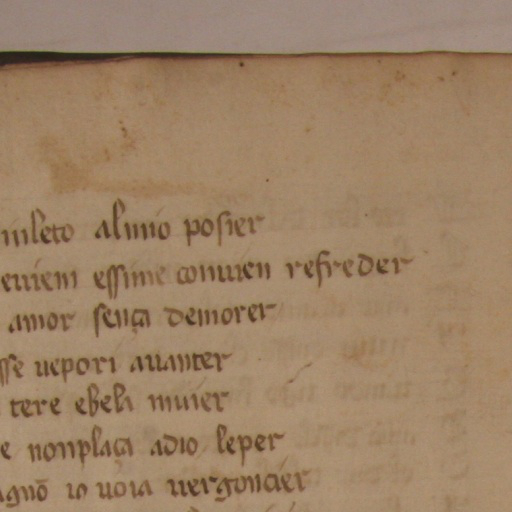 almio posier
essime conuien refreder
amor sença demorer
uepori auanter
tere ebela muier
nonplaca adio leper
io uoia uergoncier